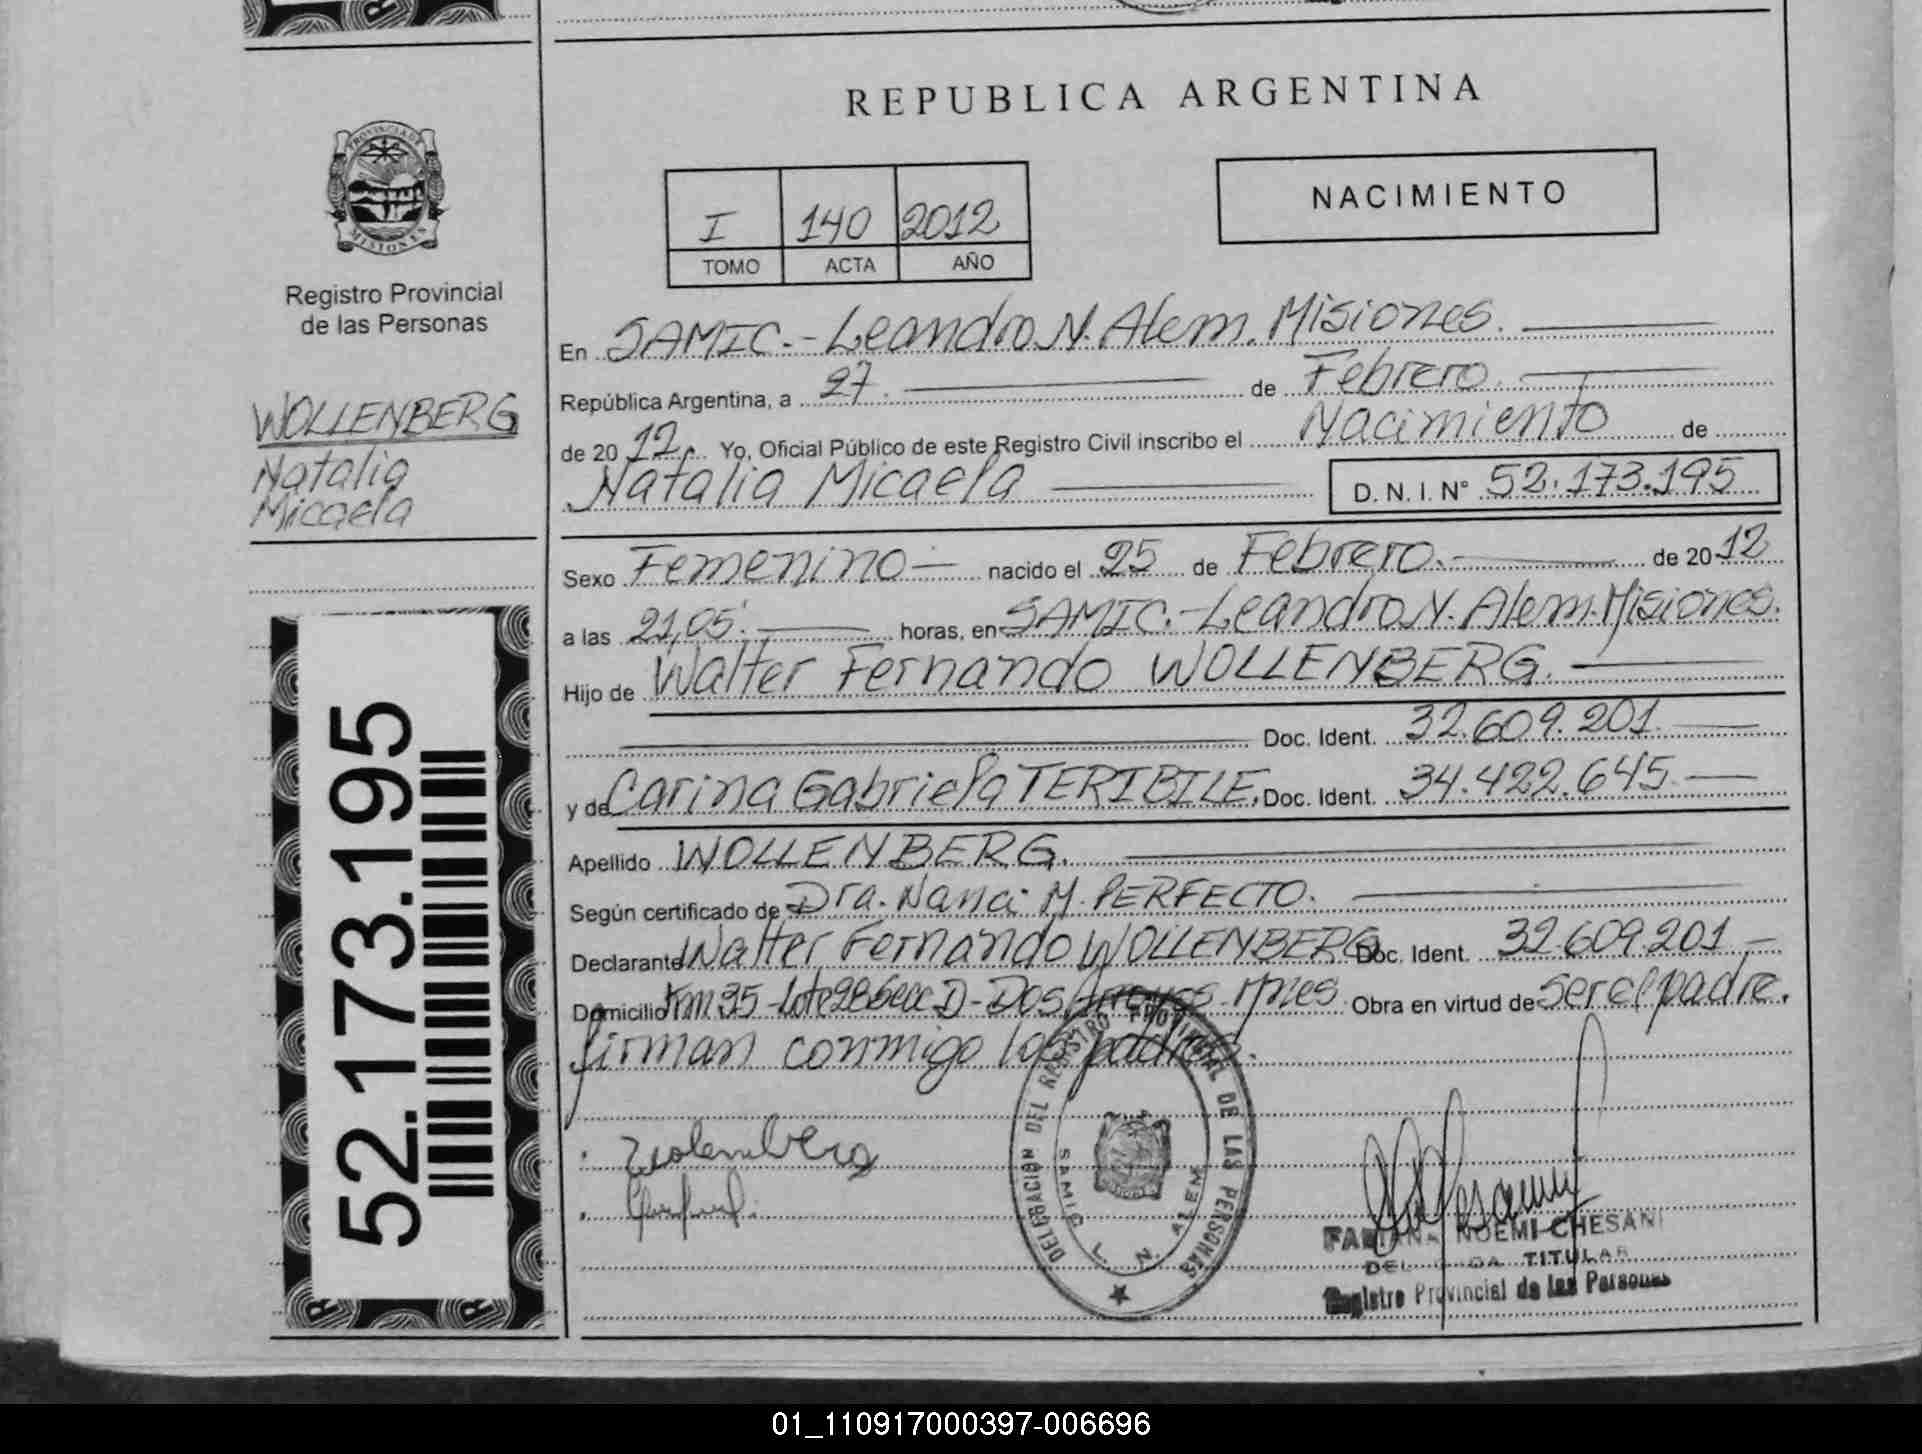 REPUBLICA ARGENTINA
NACIMIENTO
I 140 2012
TOMO ACTA AÑO
PROVINCIA DE
MISIONES
Registro Provincial
de las Personas
WOLLENBERG
Natalia
Micaela
52.173.195
En SAMIC.-Leandro N. Alem. Misiones.
República Argentina, a 27. de Febrero.
de 2012. Yo, Oficial Público de este Registro Civil inscribo el Nacimiento de
Natalia Micaela D. N. I. N° 52.173.195
Sexo Femenino nacido el 25 de Febrero. de 2012
a las 21,05. horas, en SAMIC.-Leandro N. Alem. Misiones.
Hijo de Walter Fernando WOLLENBERG.
Doc. Ident. 32.609.201
y de Carina Gabriela TERIBILE. Doc. Ident. 34.422.645
Apellido WOLLENBERG.
Según certificado de Dra. Nanci M. PERFECTO.
Declarante Walter Fernando WOLLENBERG Doc. Ident. 32.609.201
Domicilio Km 35 - Lote 28 Secc D - Dos Arroyos - Mnes. Obra en virtud de ser el padre.
firman conmigo los padres.
DELEGACION DEL REGISTRO PROVINCIAL DE LAS PERSONAS
SAMIC L. N. ALEM
FABIANA NOEMI CHESANI
TITULAR
Registro Provincial de las Personas
01_110917000397-006696